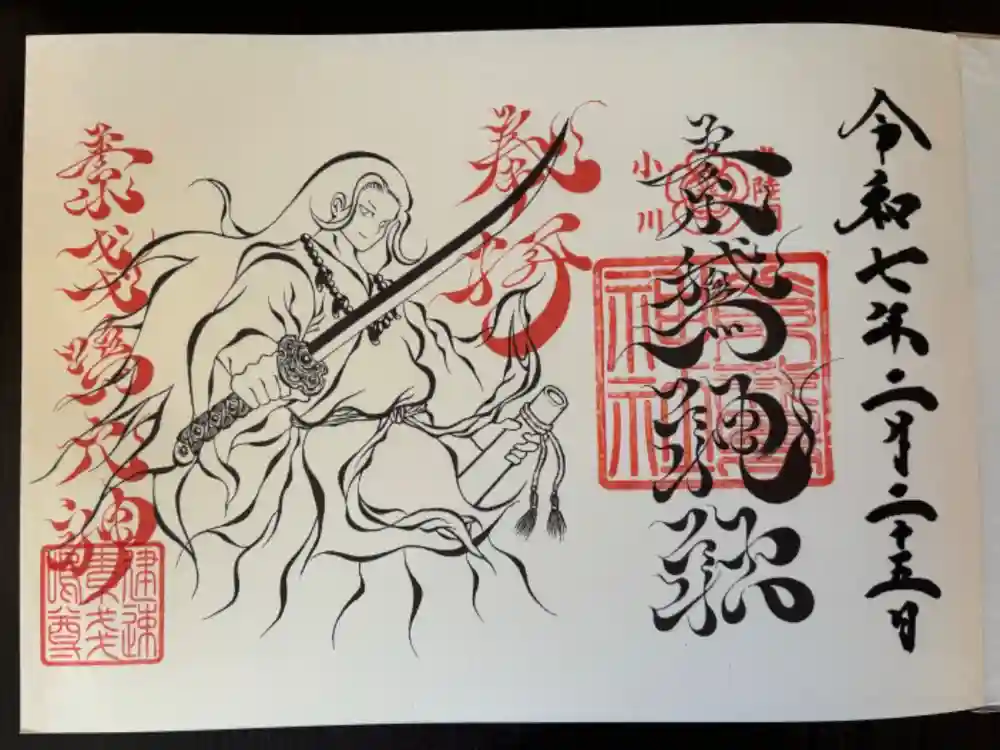 令和七年二月二十五日
常陸
小川
素鵞神社
素鵞神社
奉拝
素戔嗚大神
建速
素戔
嗚尊